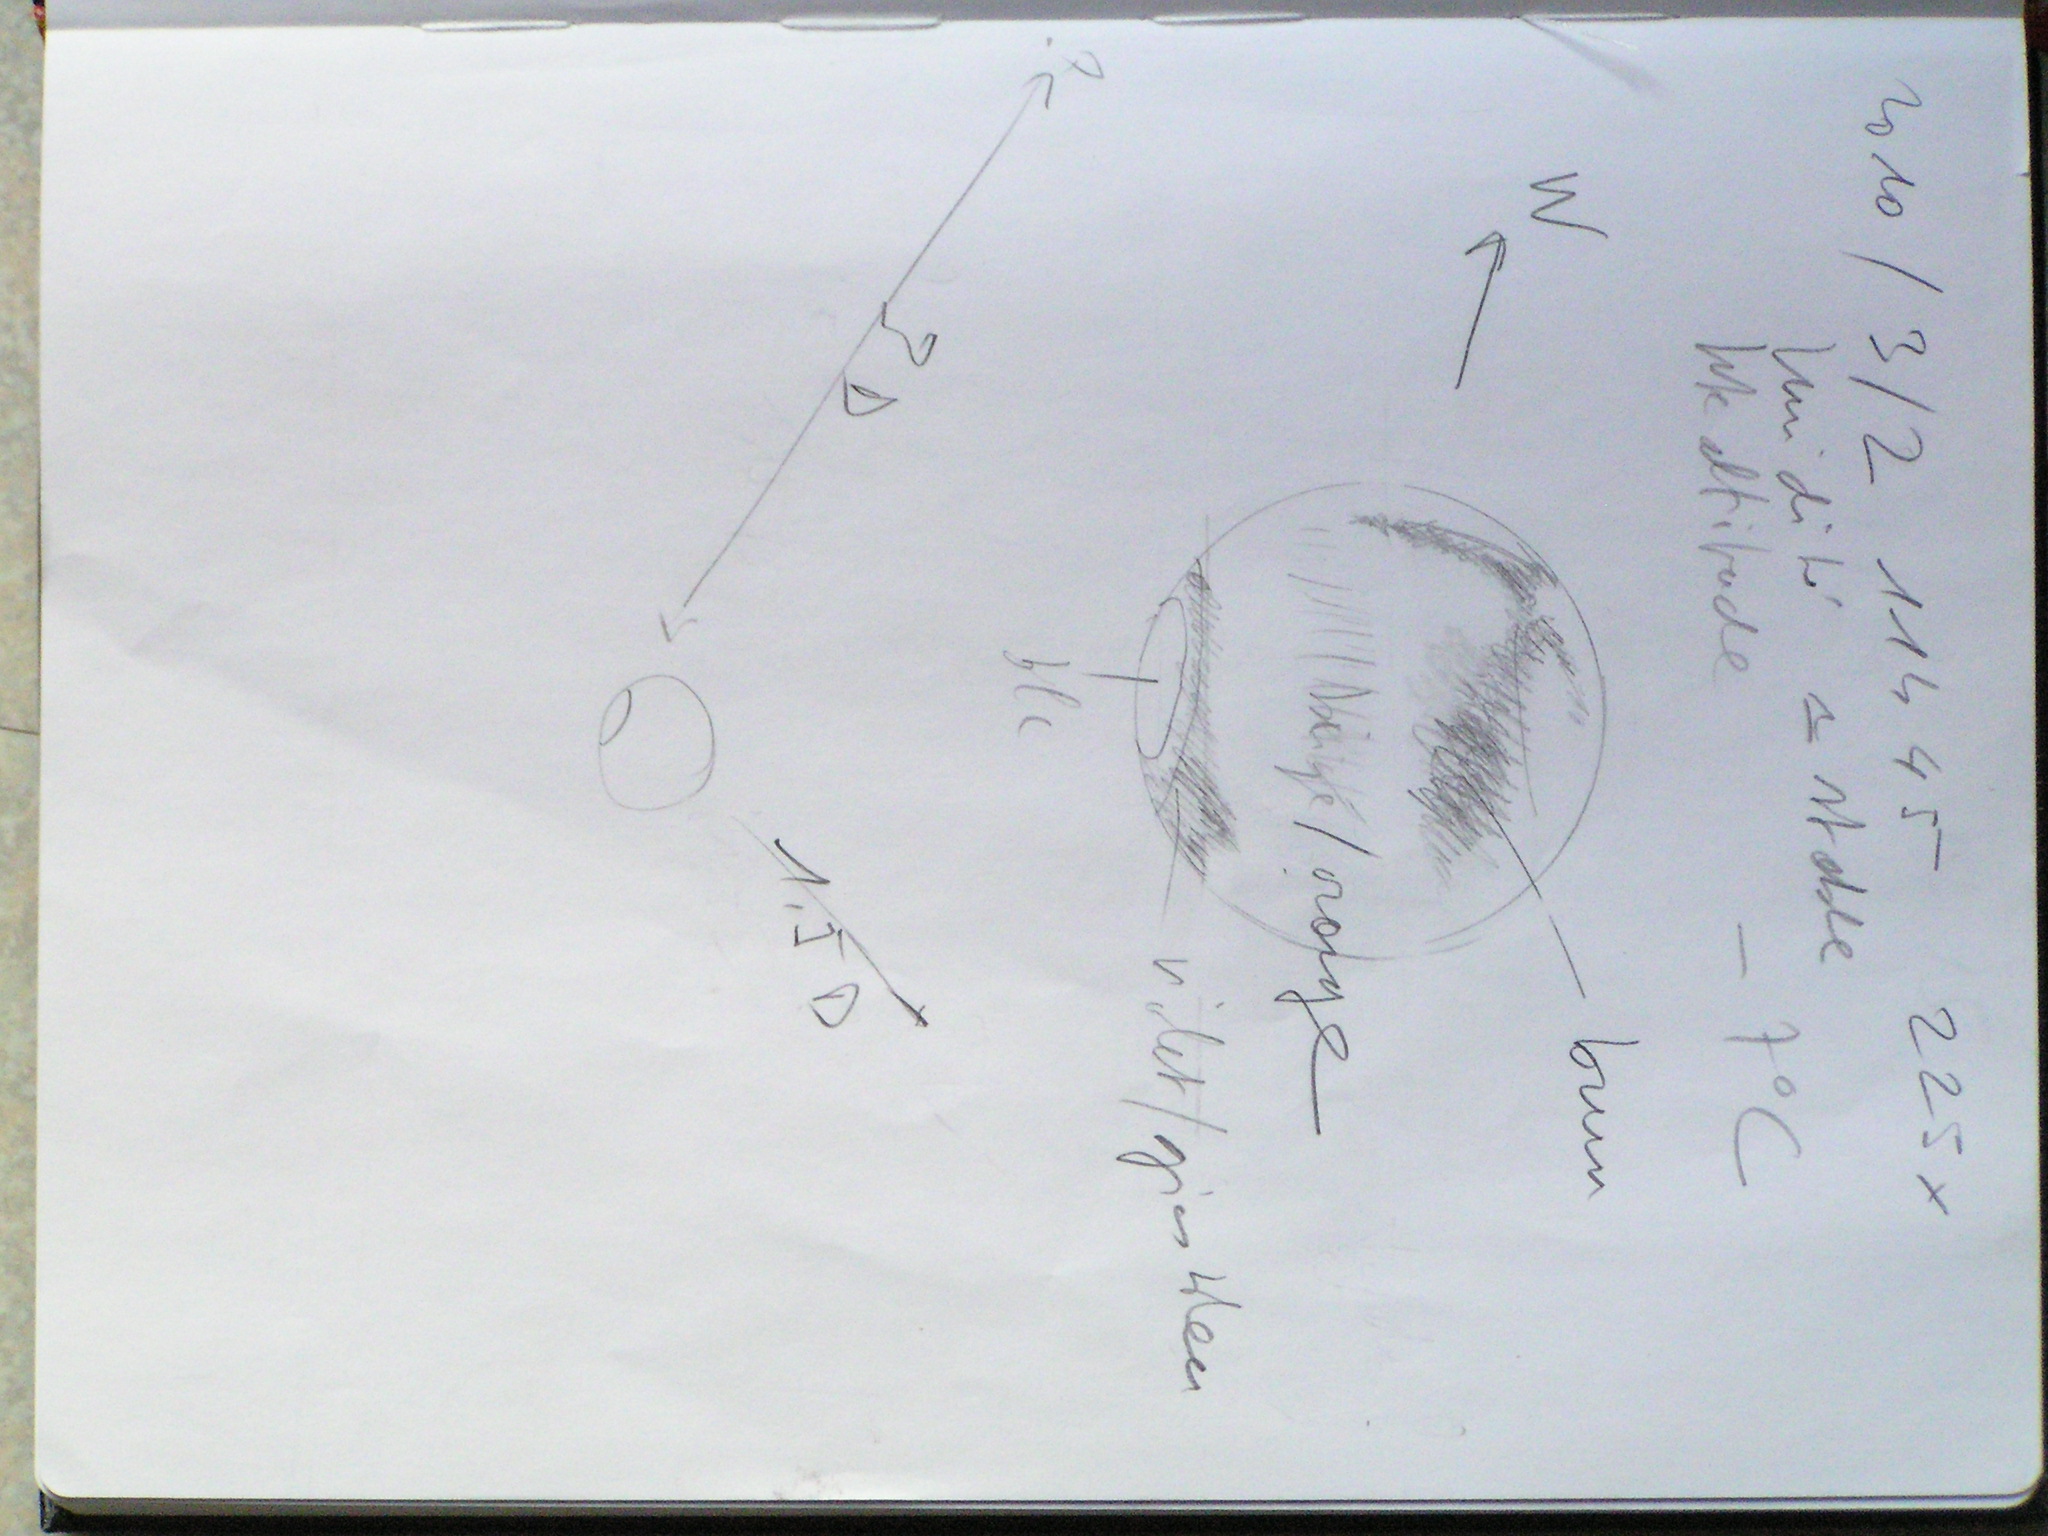 2010/3/2 11h45 225x
humidité = stable
hte altitude - 7°C
W
brun
/orange
violet/gris bleu
blc
?
D
1,5 D